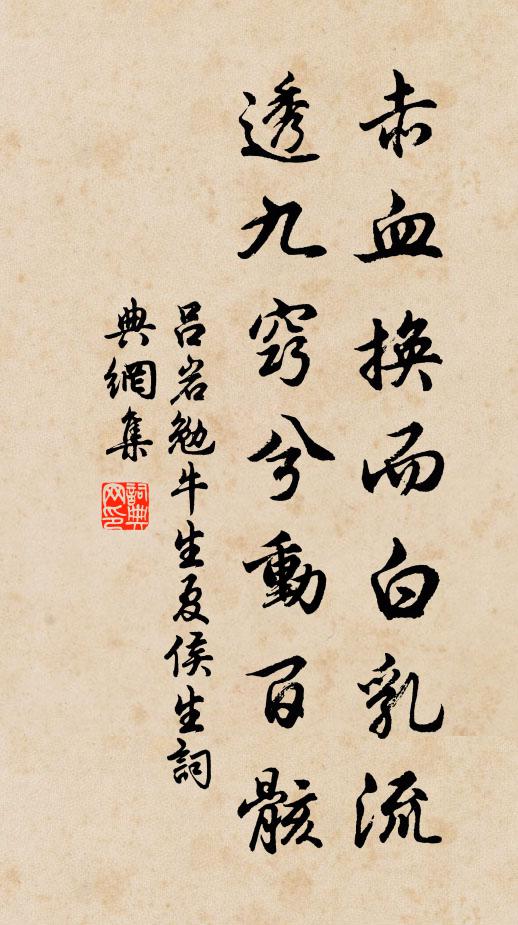 赤血換而白乳流
透九竅兮動百骸
呂岩勉牛生夏侯生詞
典網集
詞典网印